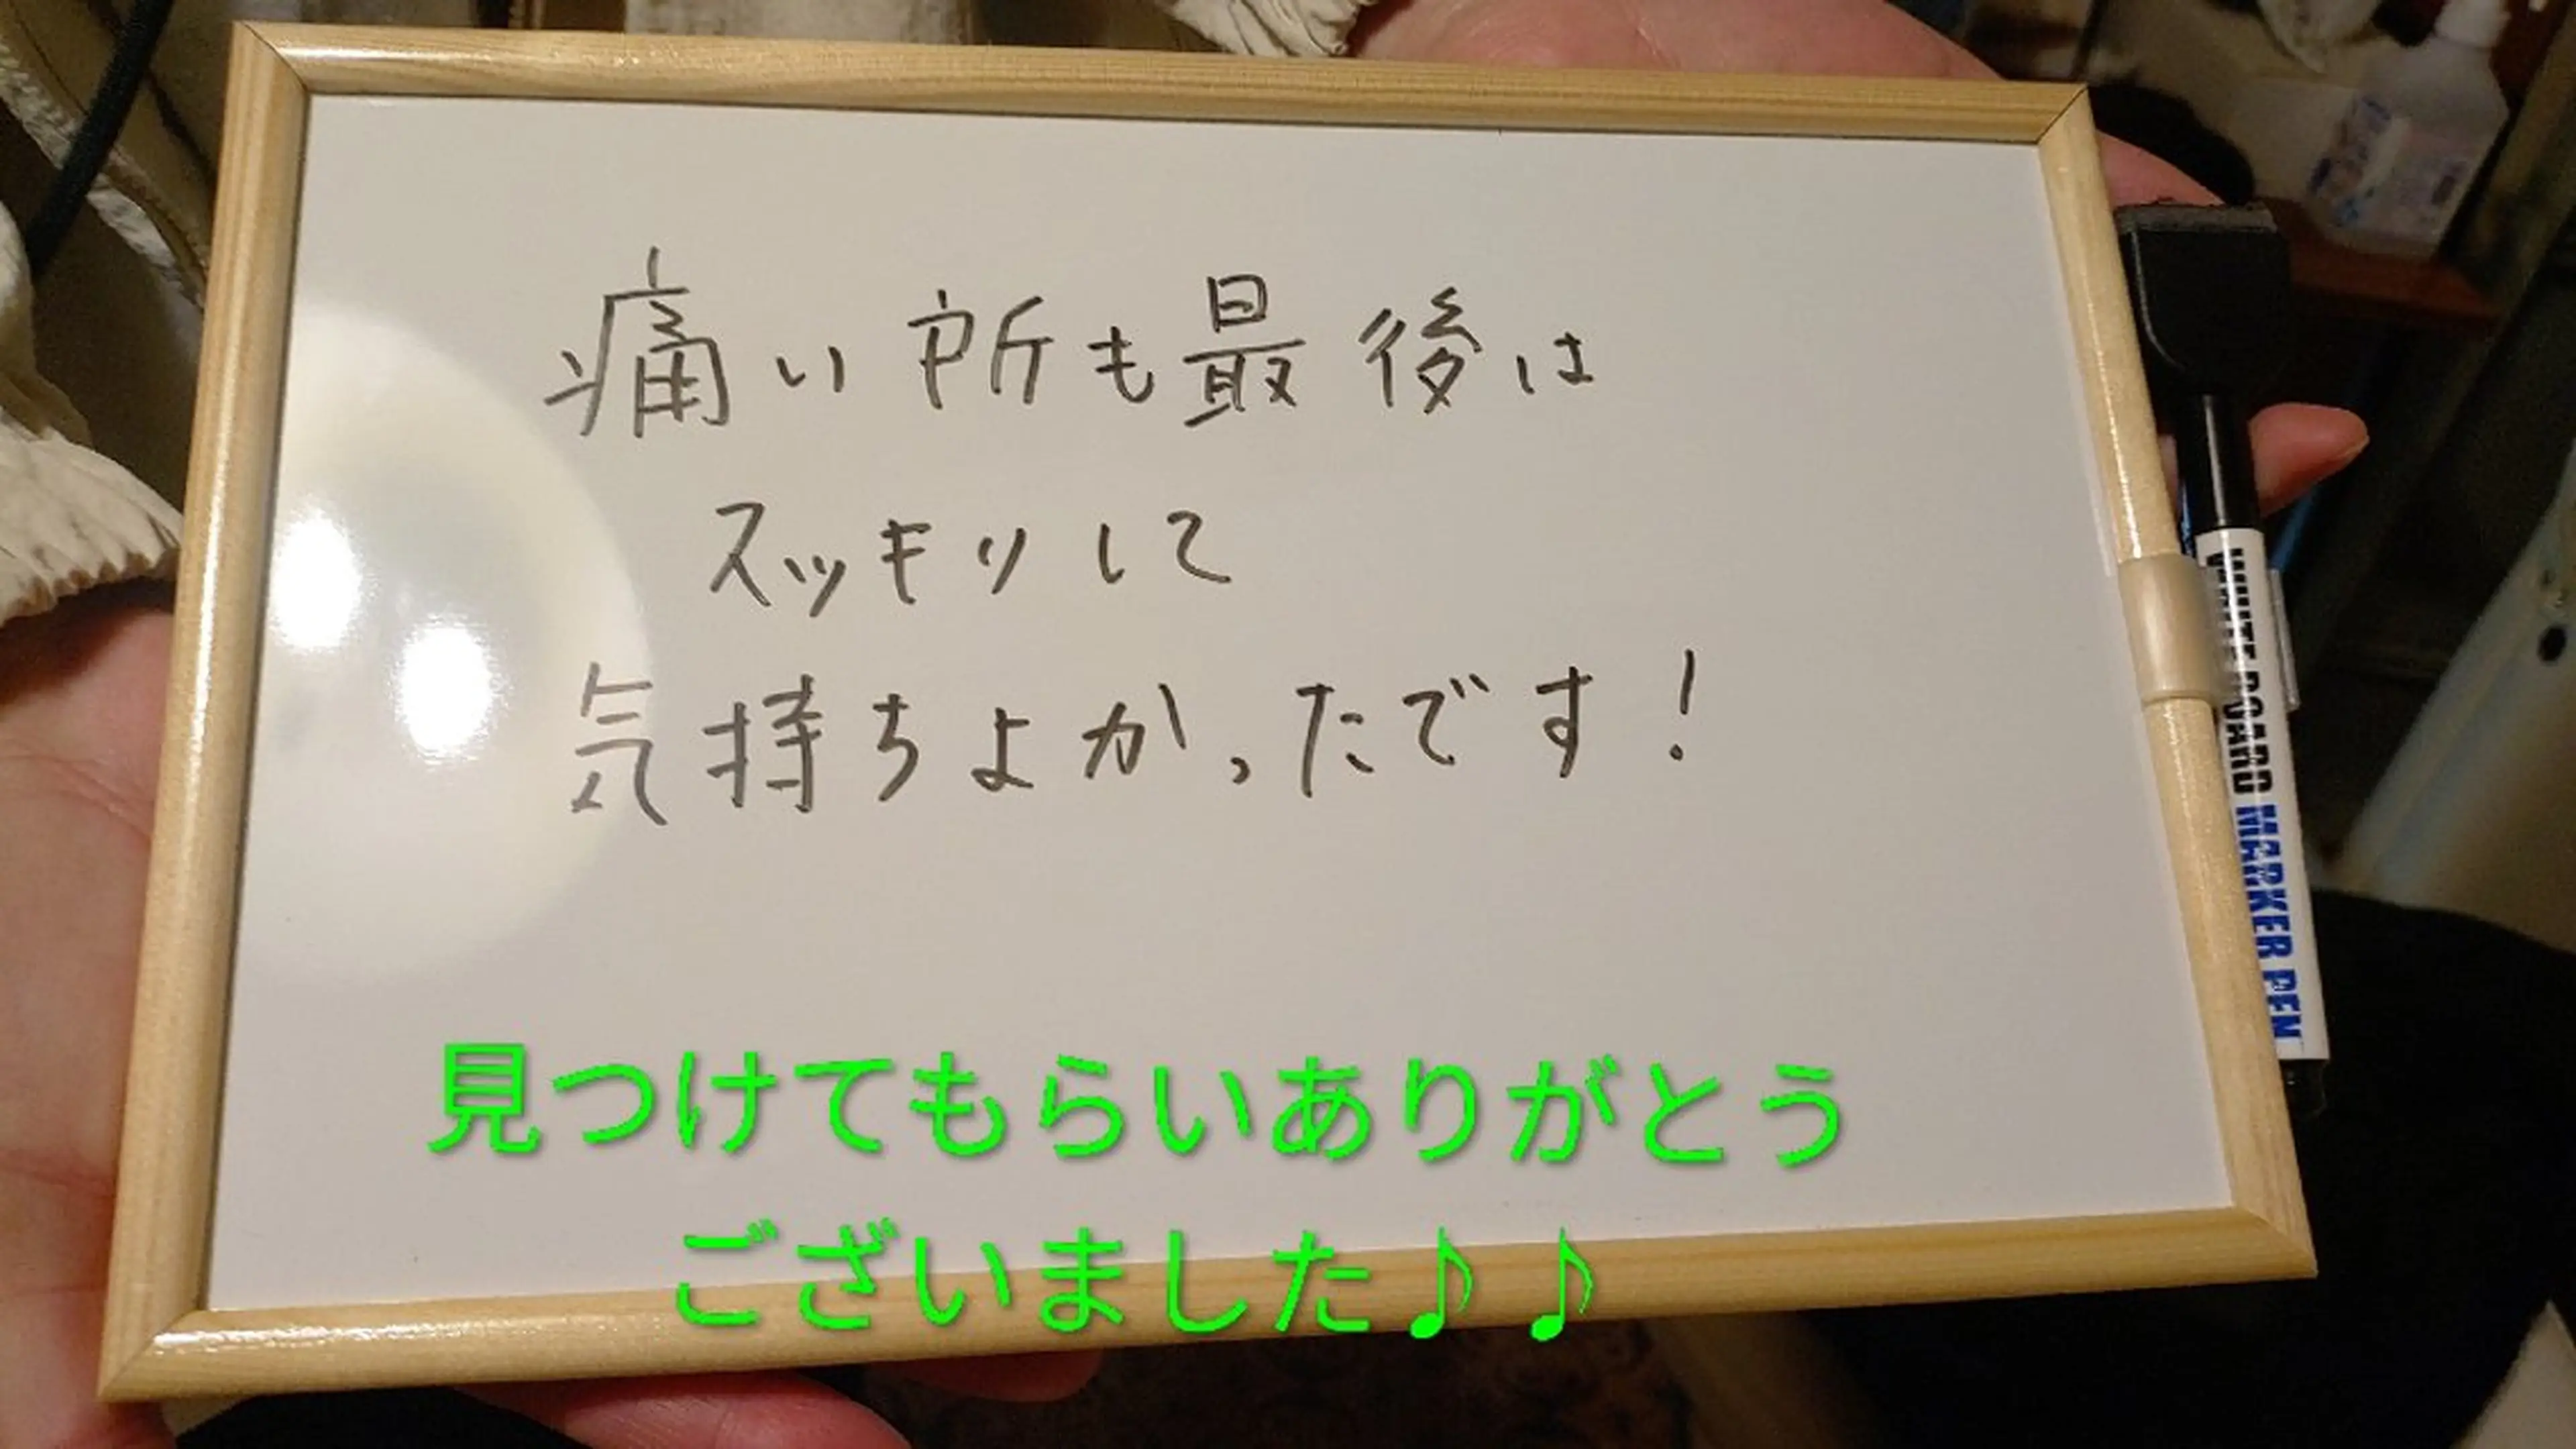 痛い所も最後は
スッキリして
気持ちよかったです!
見つけてもらいありがとう
ございました♪♪
WHITE BOARD MARKER PEN